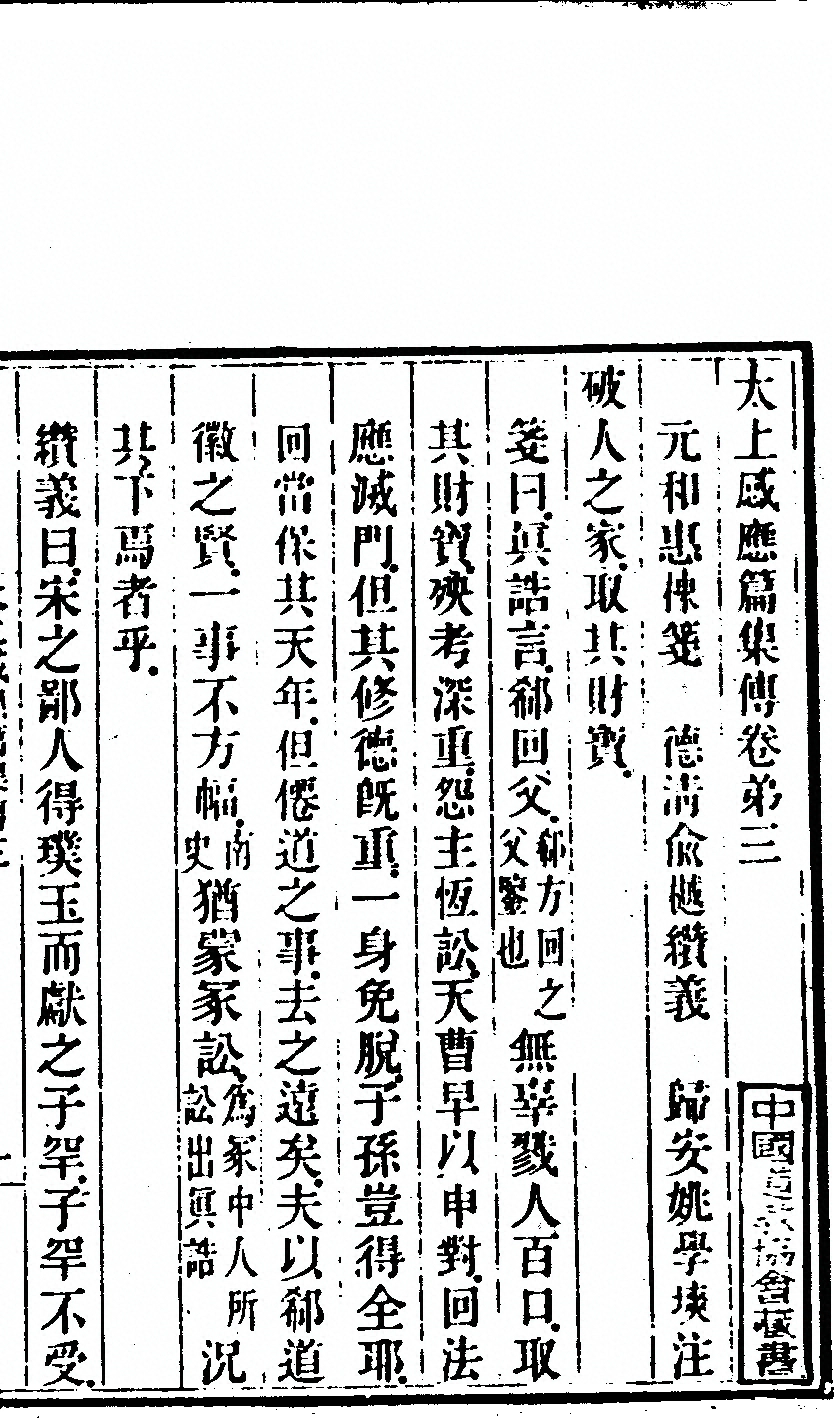 太上感應篇集傳卷弟三
元和惠棟箋　德清俞樾纘義　歸安姚學塽注
破人之家.取其財寶.
箋曰.眞誥言.郗回父.郗方回之父鑒也無辜戮人百口.取
其財寶.殃考深重.怨主恆訟.天曹早以申對.回法
應滅門.但其修德旣重.一身免脫.子孫豈得全耶.
回當保其天年.但僊道之事.去之遠矣.夫以郗道
徽之賢.一事不方幅.南史猶蒙冢訟.爲冢中人所訟出眞誥況
其下焉者乎.
纘義曰.宋之鄙人得璞玉而獻之子罕.子罕不受.
中國道教協會藏書